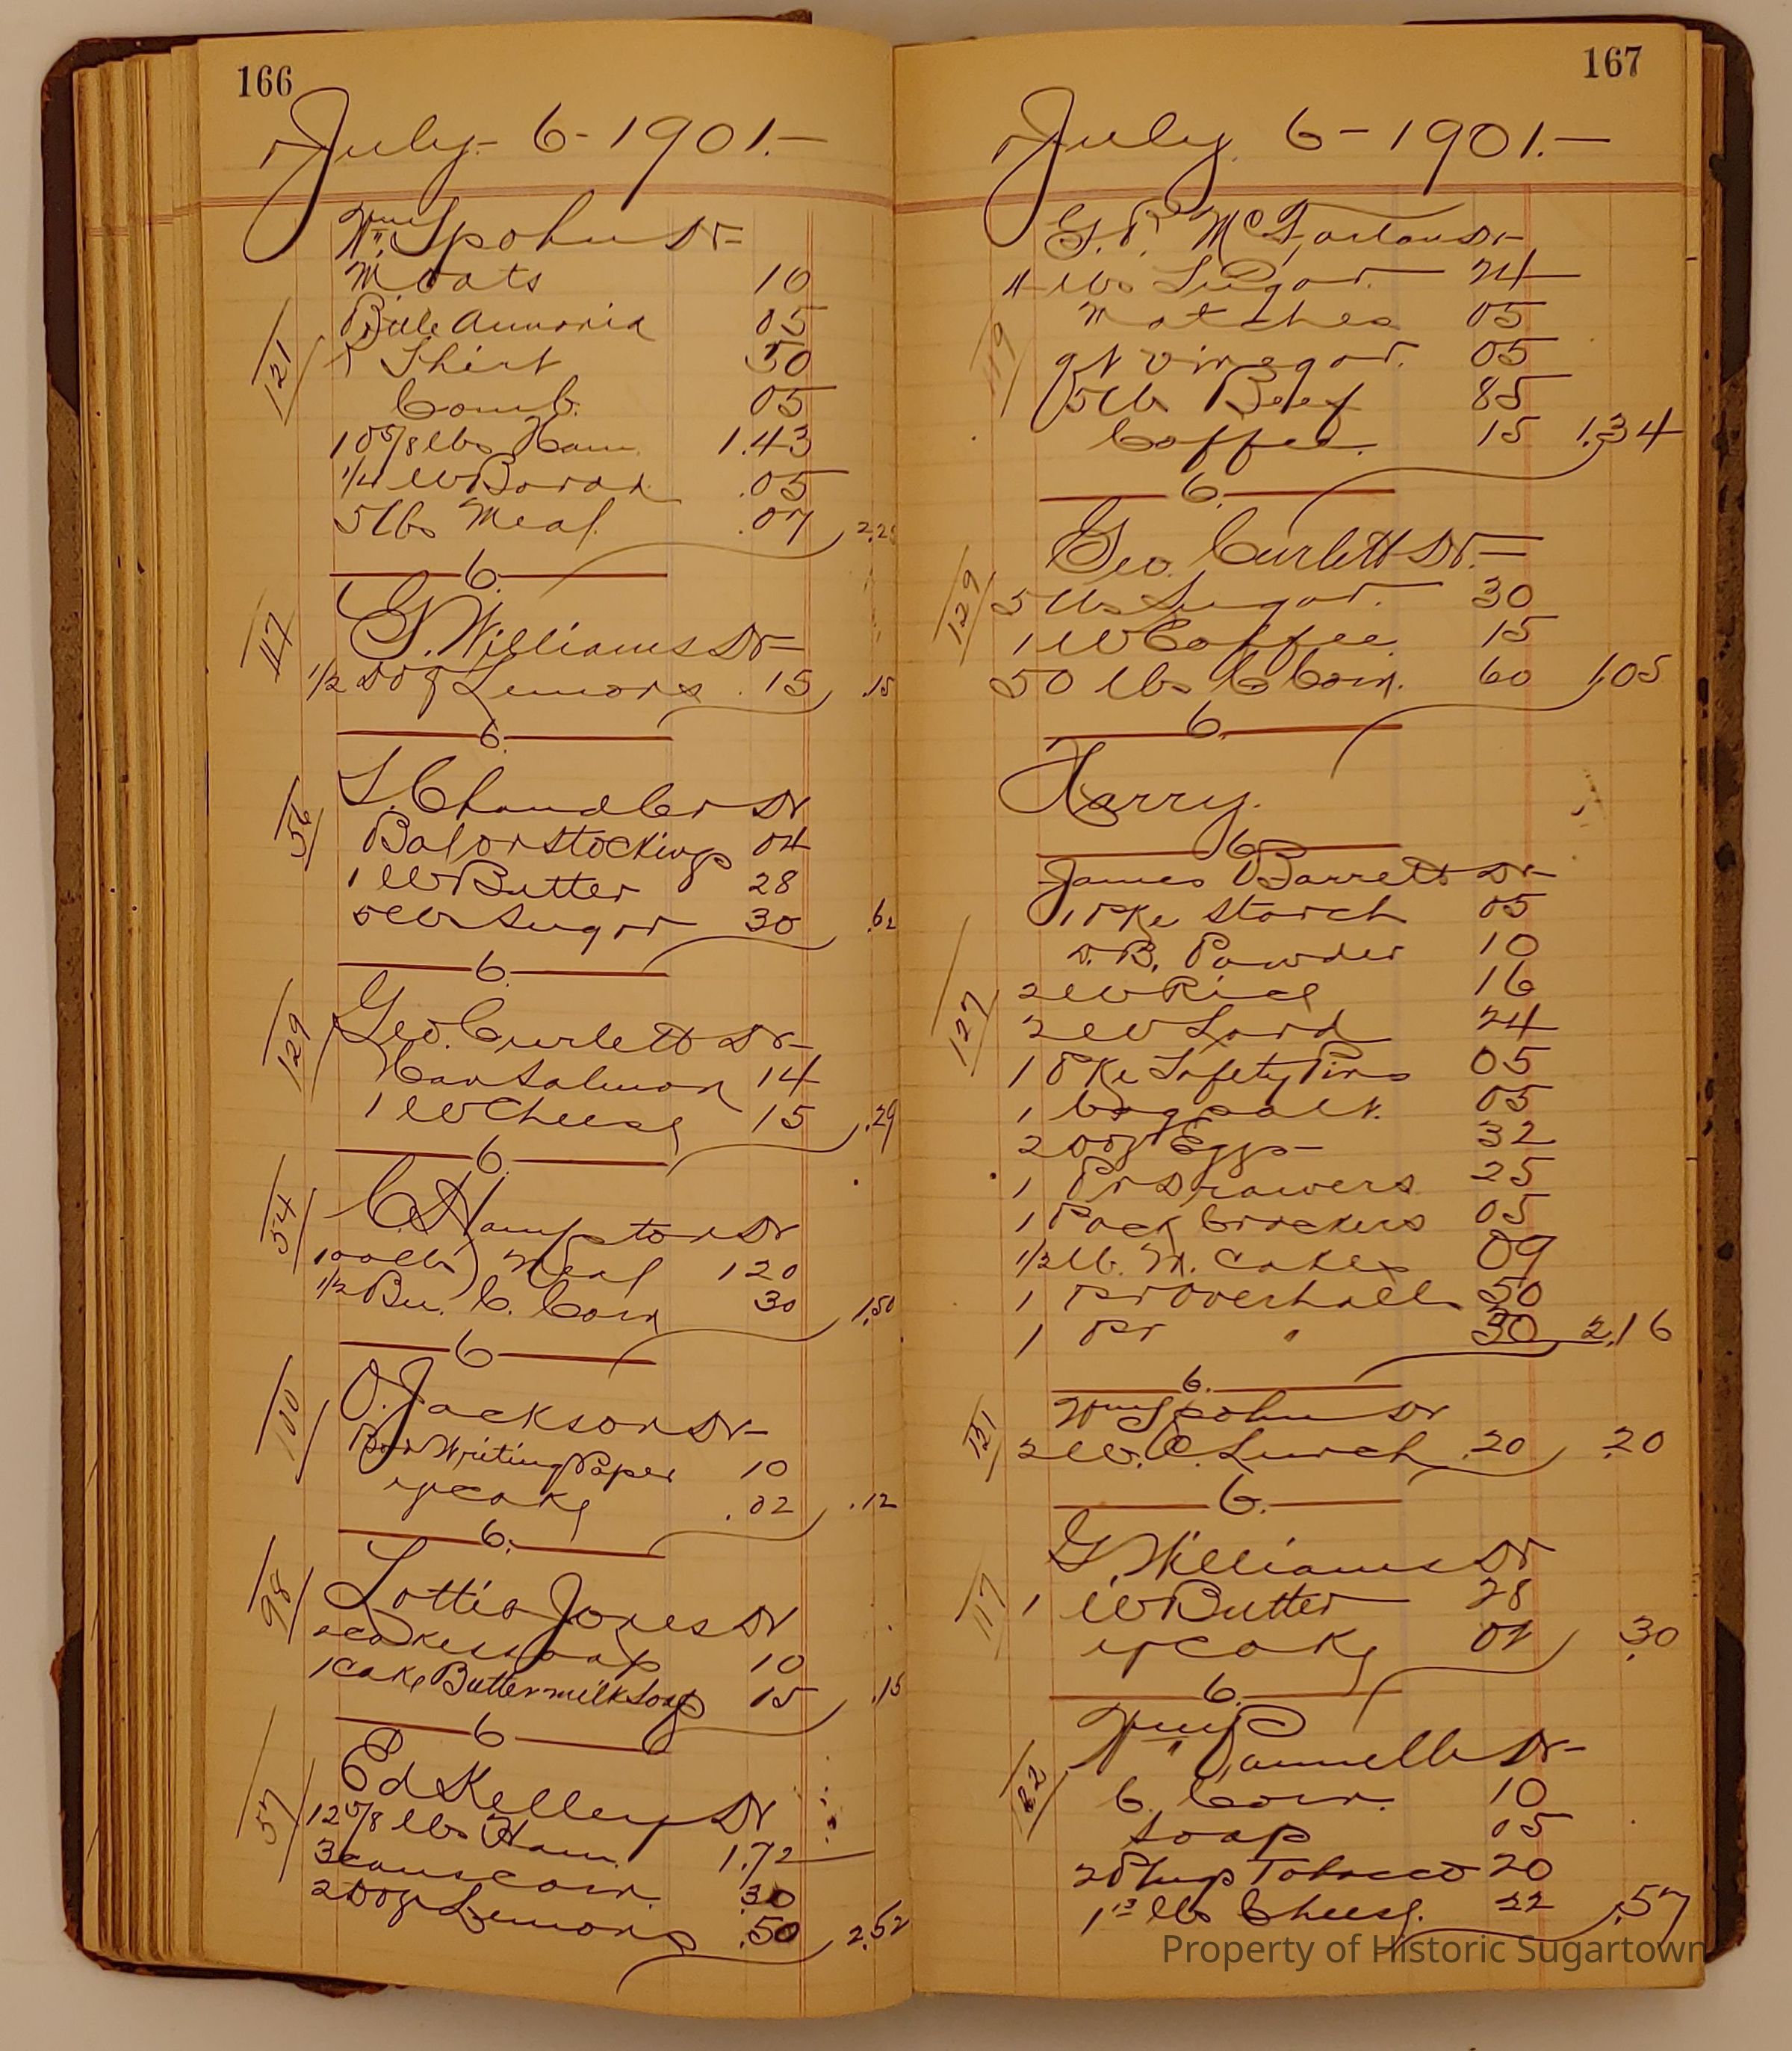 166
July 6-1901.-
Wm Spohn Dr
M Oats 10
Bottle Amonia 05
1 Shirt 50
Comb. 05
121
10 5/8 lbs Ham 1.43
1/4 lb Borax .05
5 lbs Meal .07 2.25
6.
117
G. Williams Dr
1/2 Doz Lemons .15 .15
6.
56
S. Chandler Dr
Bal on Stockings 04
1 lb Butter 28
5 lb Sugar 30 .62
6.
129
Geo. Curlett Dr
Can Salmon 14
1 lb Cheese 15 .29
6.
54
C. Hampton Dr
100 lbs Meal 120
1/2 Bu. C. Corn 30 1.50
6
100
O. Jackson Dr
Box Writing Paper 10
yscake .02 .12
6.
98
Lottie Jones Dr
cakes soap 10
1 cake Buttermilk Soap 15 .15
6
57
Ed Kelley Dr
12 5/8 lbs Ham. 1.72
3 cans corn. .30
2 Doz Lemons .50 2.52
167
July 6-1901.-
G. P. McFarlan Dr
4 lbs Sugar 24
119
Matches 05
qt Vinegar. 05
5 lbs Beef 85
Coffee. 15 1.34
6.
129
Geo. Curlett Dr.
5 lbs Sugar. 30
1 lb Coffee. 15
50 lbs C Corn. 60 1.05
6.
Harry.
6
James Barrett Dr
1 Pke Starch 05
D. B. Powder 10
127
2 lb Rice 16
2 lb Lard 24
1 Pke Safety Pins 05
1 bag salt. 05
2 Doz Eggs 32
1 Pr Drawers 25
1 Pack Crackers 05
1/2 lb. M. Cakes 09
1 Pr Overhalls 50
1 Pr " 30 2.16
6.
121
Wm Spohn Dr
2 lb. C. Lunch .20 .20
6.
117
G. Williams Dr
1 lb Butter 28
yscake 02 .30
6.
122
Wm P Pannell Dr
C. Corn. 10
Soap 05
2 Plugs Tobacco 20
1 13 lbs Cheese. 22 .57
Property of Historic Sugartown